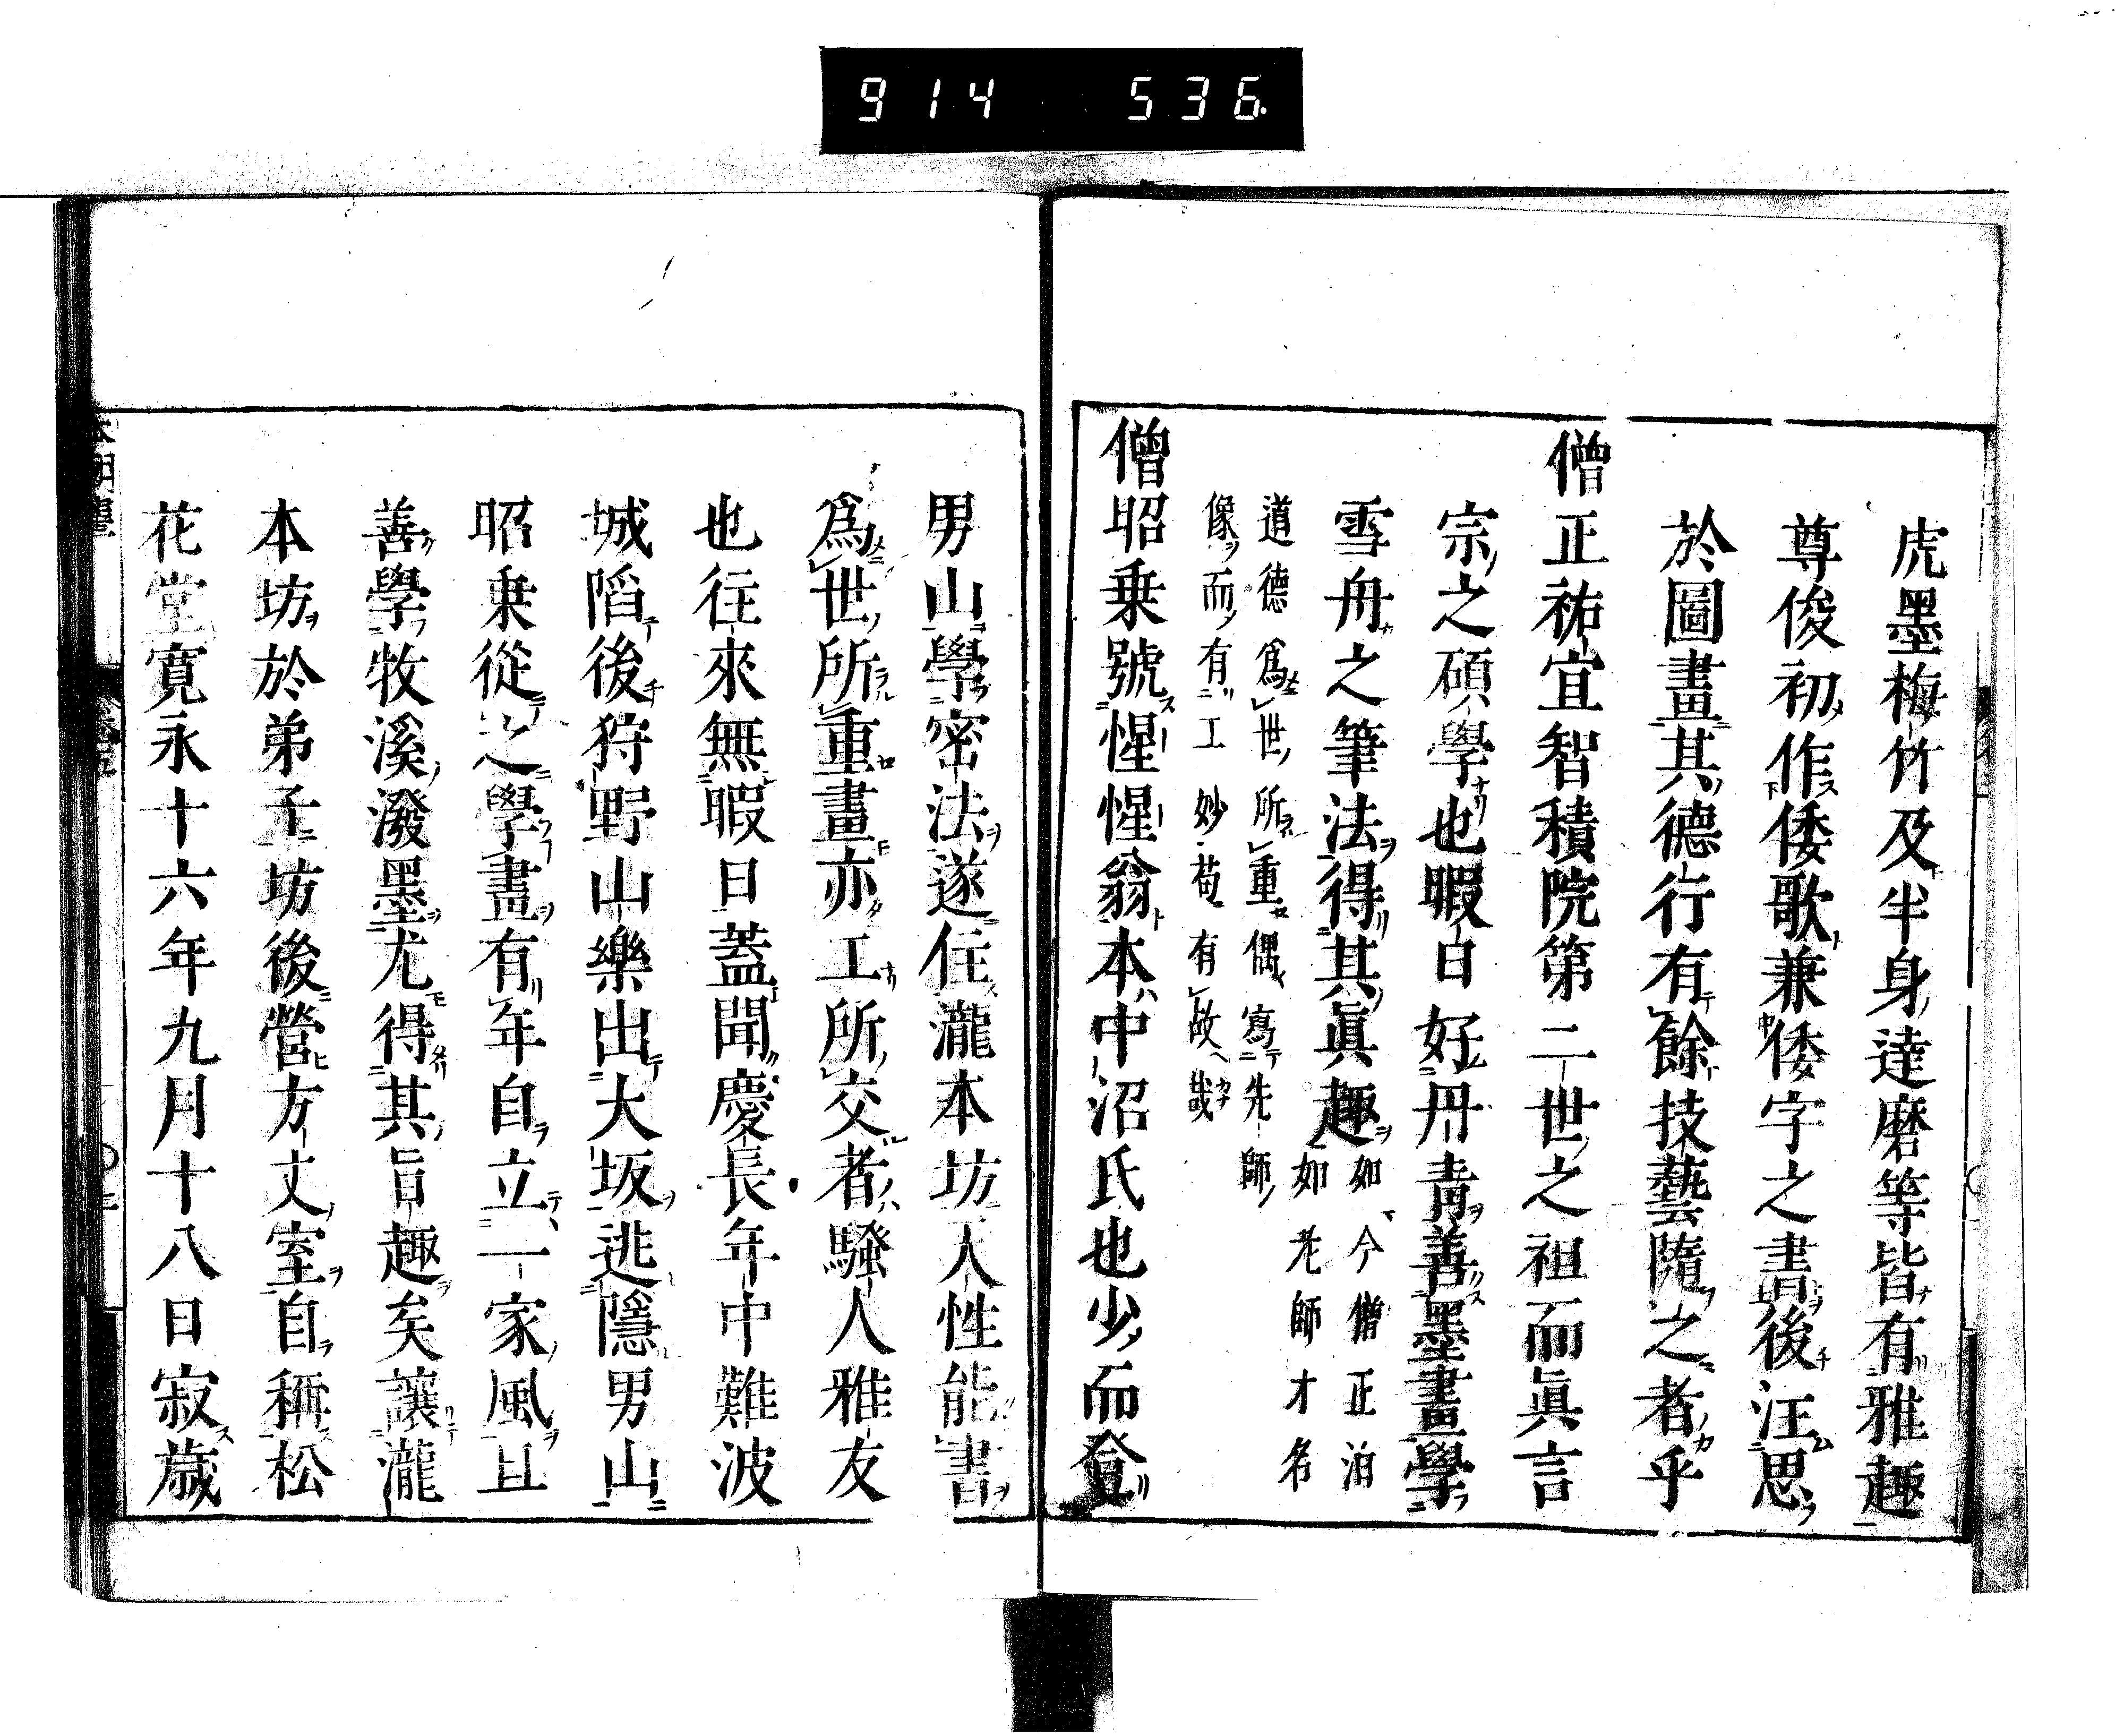 914 536
虎墨梅竹及半身達磨等皆有雅趣
尊俊初作倭歌兼倭字之書後汪思
於圖畫其德行有餘技藝隨之者乎
僧正祐宜智積院第二世之祖而眞言
宗之碩學也暇日好丹青善墨畫學
雪舟之筆法得其眞趣
如今僧正泊
如老師才名
道德爲世所重偶寫先師
像而有工妙苟有故哉
僧昭乗號惺惺翁本中沼氏也少而登
男山學密法遂住瀧本坊人性能書
爲世所重畫亦工所交者騷人雅友
也往來無暇日蓋聞慶長年中難波
城陷後狩野山樂出大坂逃隱男山
昭乗從之學畫有年自立一家風且
善學牧溪潑墨尤得其旨趣矣讓瀧
本坊於弟子坊後營方丈室自稱松
花堂寛永十六年九月十八日寂歲